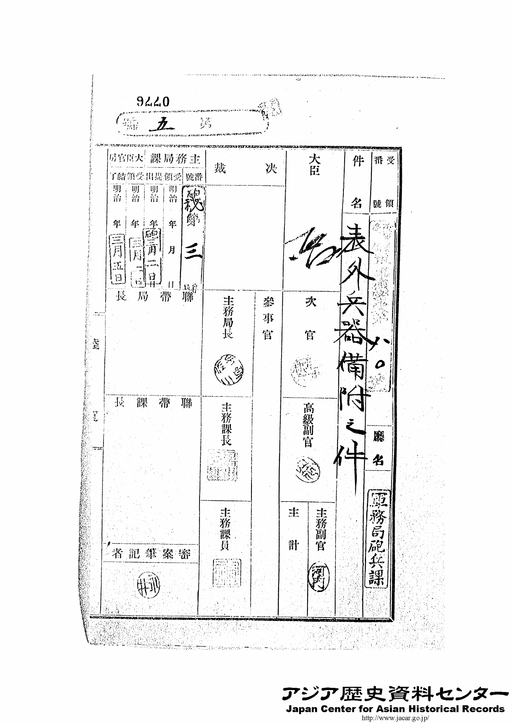 0776
第五號
受領番號
八〇
廳名
軍務局砲兵課
件名
表外兵器備附之件
大臣
次官
高級副官
主務副官
河内
主計
決裁
參事官
主務局長
主務課長
主務課員
主務局課
番號
秘第三
受領
明治 年 月 日
提出
明治 年 三月二日
大臣官房
受領
明治 年 三月二日
結了
明治 年 三月五日
聯帶局長
聯帶課長
審案筆記者
アジア歴史資料センター
Japan Center for Asian Historical Records
http://www.jacar.go.jp/